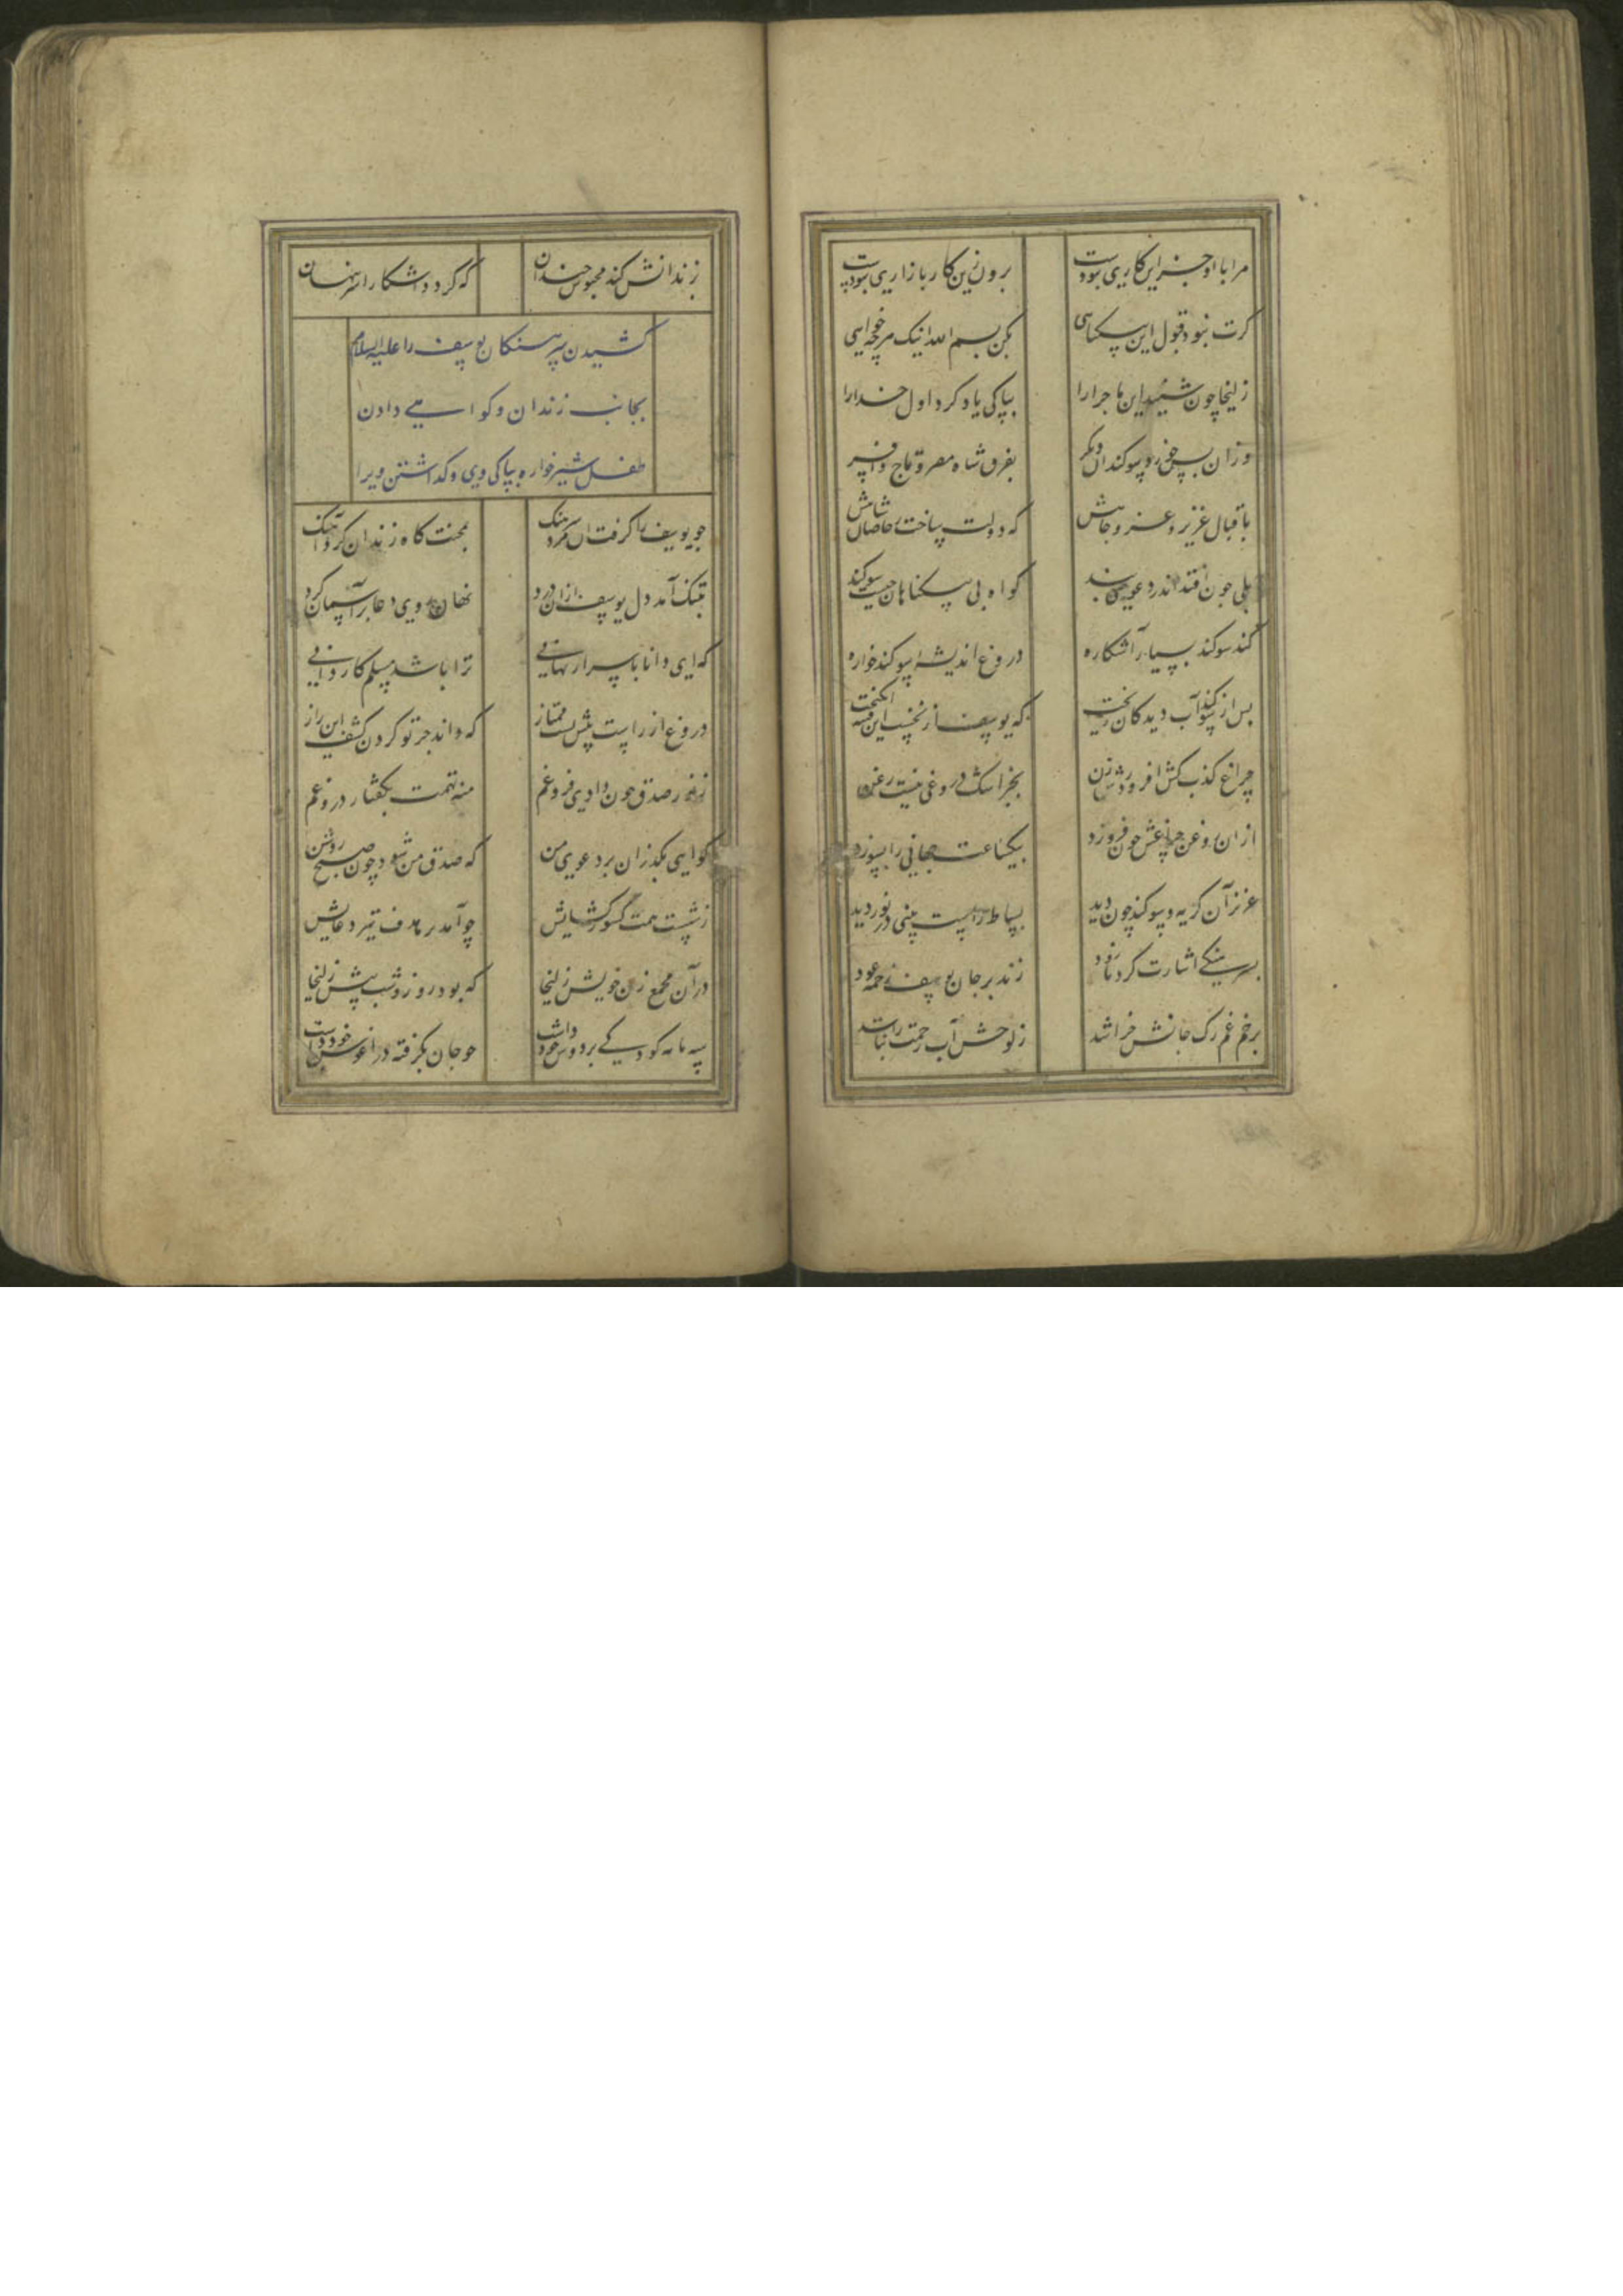 مرا با او جز این کاری نبودست برون زین کار بازاری نبودست
کرت نبود قبول این بیکناهی بکن بسم الله اینک هر چخواهی
زلیخا چون شنید این ماجرا را بپاکی یاد کرد اول خدا را
وزان پس خورد سوکندان دیکر بفرق شاه مصر و تاج و افسر
باقبال عزیز و عز و جاهش که دولت ساخت خاصان شاهش
بلی چون افتد اندر دعوی بند کواه بی کناهان چیست سوکند
کند سوکند بسیار آشکاره دروغ اندیشهٔ سوکند خواره
پس از سوکند آب دیدکان ریخت که یوسف از نخست این فتنه انکیخت
چراغ کذب کش افروزدش زن بجز اشک دروغی نیست روغن
ازان روغن چراغش چون فروزد بیکساعت جهانی را بسوزد
عزیز آن کریه و سوکند چون دید بساط راست بینی در نوردید
بسرهنکی اشارت کرد تا زود زند بر جان یوسف زخمه عود
بزخم غم رک جانش خراشد ز لوحش آب رحمت تراشد
بزندانش کند محبوس چندان که کردد آشکار آن سر پنهان
کشیدن سرهنکان یوسف را علیه السلام
بجانب زندان و کواهی دادن
طفل شیرخواره بپاکی وی و کداشتن ویرا
چو یوسف را کرفت آن مرد سرهنک بمحنت کاه زندان کرد آهنک
بتنک آمد دل یوسف ازان درد نهان روی دعا بر آسمان کرد
که ای دانا باسرار نهانی ترا باشد مسلم کاردانی
دروغ از راست پیش تست ممتاز که داند جز تو کردن کشف این راز
ز نور صدق چون دادی فروغم منه تهمت بکفتار دروغم
کواهی بکذران بر دعوی من که صدق من شود چون صبح روشن
ز شست همت کشور کشایش چو آمد بر هدف تیر دعایش
در آن مجمع زن خویش زلیخا که بودی روز و شب پیش زلیخا
سه ماهه کودکی بر دوش خود داشت چو جان بکرفته در آغوش خود داشت